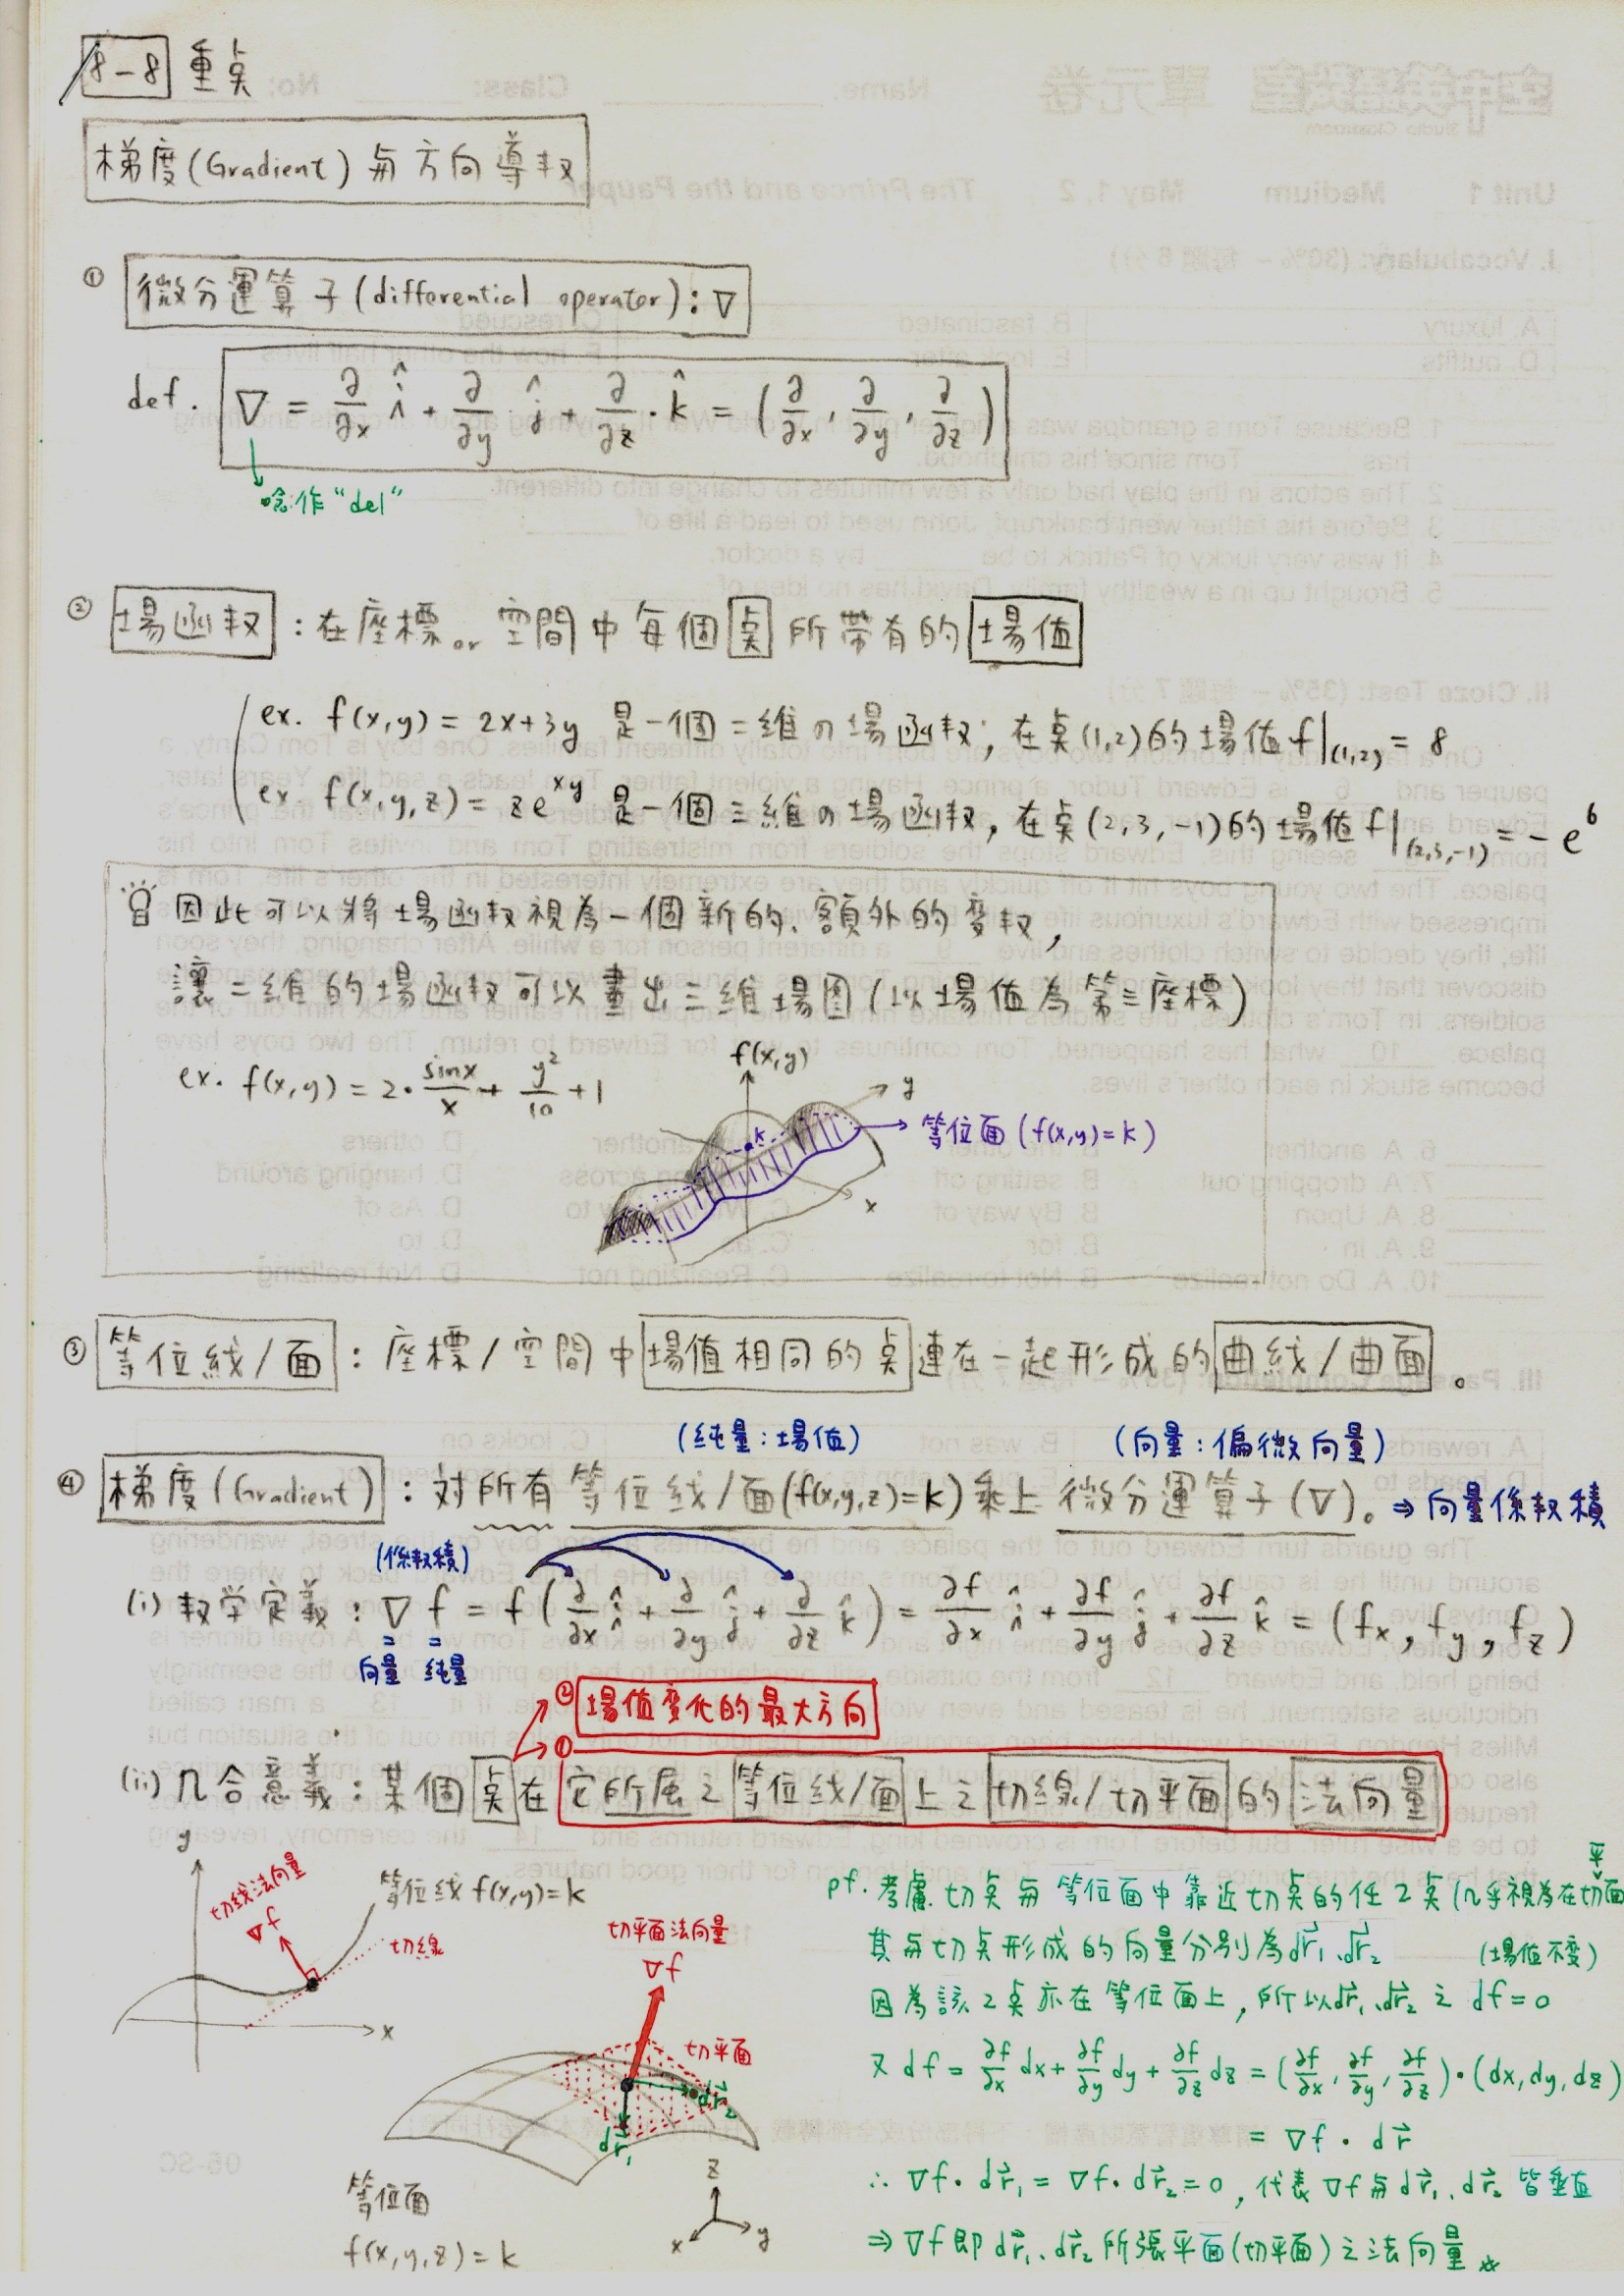 8-8 重点
梯度(Gradient)与方向導数
① 微分運算子(differential operator):∇
def. ∇ = ∂/∂x î + ∂/∂y ĵ + ∂/∂z · k̂ = (∂/∂x, ∂/∂y, ∂/∂z)
唸作"del"
② 場函数:在座標or空間中每個点所帶有的場值
ex. f(x,y) = 2x+3y 是一個二維の場函数; 在点(1,2)的場值 f|(1,2) = 8
ex. f(x,y,z) = ze^xy 是一個三維の場函数, 在点(2,3,-1)的場值 f|(2,3,-1) = -e^6
因此可以將場函数視為一個新的、額外的变数,
讓二維的場函数可以畫出三維場図(以場值為第三座標)
ex. f(x,y) = 2·sinx/x + y²/10 + 1
f(x,y)
y
k
等位面(f(x,y)=k)
x
③ 等位線/面:座標/空間中場值相同的点連在一起形成的曲線/曲面。
(純量:場值)
(向量:偏微向量)
④ 梯度(Gradient):対所有等位线/面(f(x,y,z)=k)乘上微分運算子(∇)。⇒向量係数積
(係数積)
(i) 数学定義:∇f = f(∂/∂x î + ∂/∂y ĵ + ∂/∂z k̂) = ∂f/∂x î + ∂f/∂y ĵ + ∂f/∂z k̂ = (fx, fy, fz)
向量 純量
② 場值变化的最大方向
①
(ii) 几合意義:某個点在它所属之等位线/面上之切線/切平面的法向量
y
切线法向量
∇f
等位线 f(x,y)=k
切線
x
切平面法向量
∇f
切平面
dr⃗₂
dr⃗₁
等位面
f(x,y,z)=k
z
x
y
pf. 考慮切点与等位面中靠近切点的任2点(几乎視為在切平面
其与切点形成的向量分別為dr⃗₁、dr⃗₂
(場值不变)
因為該2点亦在等位面上,所以dr⃗₁、dr⃗₂之 df=0
又 df = ∂f/∂x dx + ∂f/∂y dy + ∂f/∂z dz = (∂f/∂x, ∂f/∂y, ∂f/∂z)·(dx,dy,dz)
= ∇f · dr⃗
∴ ∇f·dr⃗₁ = ∇f·dr⃗₂ = 0, 代表∇f与dr⃗₁、dr⃗₂ 皆垂直
⇒ ∇f即dr⃗₁、dr⃗₂所張平面(切平面)之法向量